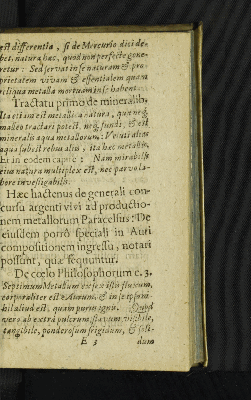 est differentia, si de Mercurio dici de-
bet, natura hæc, quod non perfectè gene-
retur: Sed servat in se naturam & pro-
prietatem vivam & essentialem quam
reliqua metalla mortuam in se habent.
Tractatu primo de mineralib.
Ita etiam est metallica natura, quæ neq;
malleo tractari potest, neq; fundi, & est
mineralis aqua metallorum: Ut uti alius
aqua subsit rebus aliis, ita hæc metallis.
Et in eodem capite: Nam mirabilis
eius natura multiplex est, nec parvo la-
bore investigabilis.
Hæc hactenus de generali con-
cursu argenti vivi ad productio-
nem metallorum Paracelsus: De
eiusdem porrò speciali in Auri
compositionem ingressu, notari
possunt, quæ sequuntur.
De cœlo Philosophorum c. 3.
Septimum Metallum ex sex istis fluxum,
corporaliter est Aurum, & in se ipso ni-
hil aliud est, quàm purus ignis. Quod
vero ab extra pulcrum, flavum, visibile,
tangibile, ponderosum frigidum, & soli-
E 3 dum